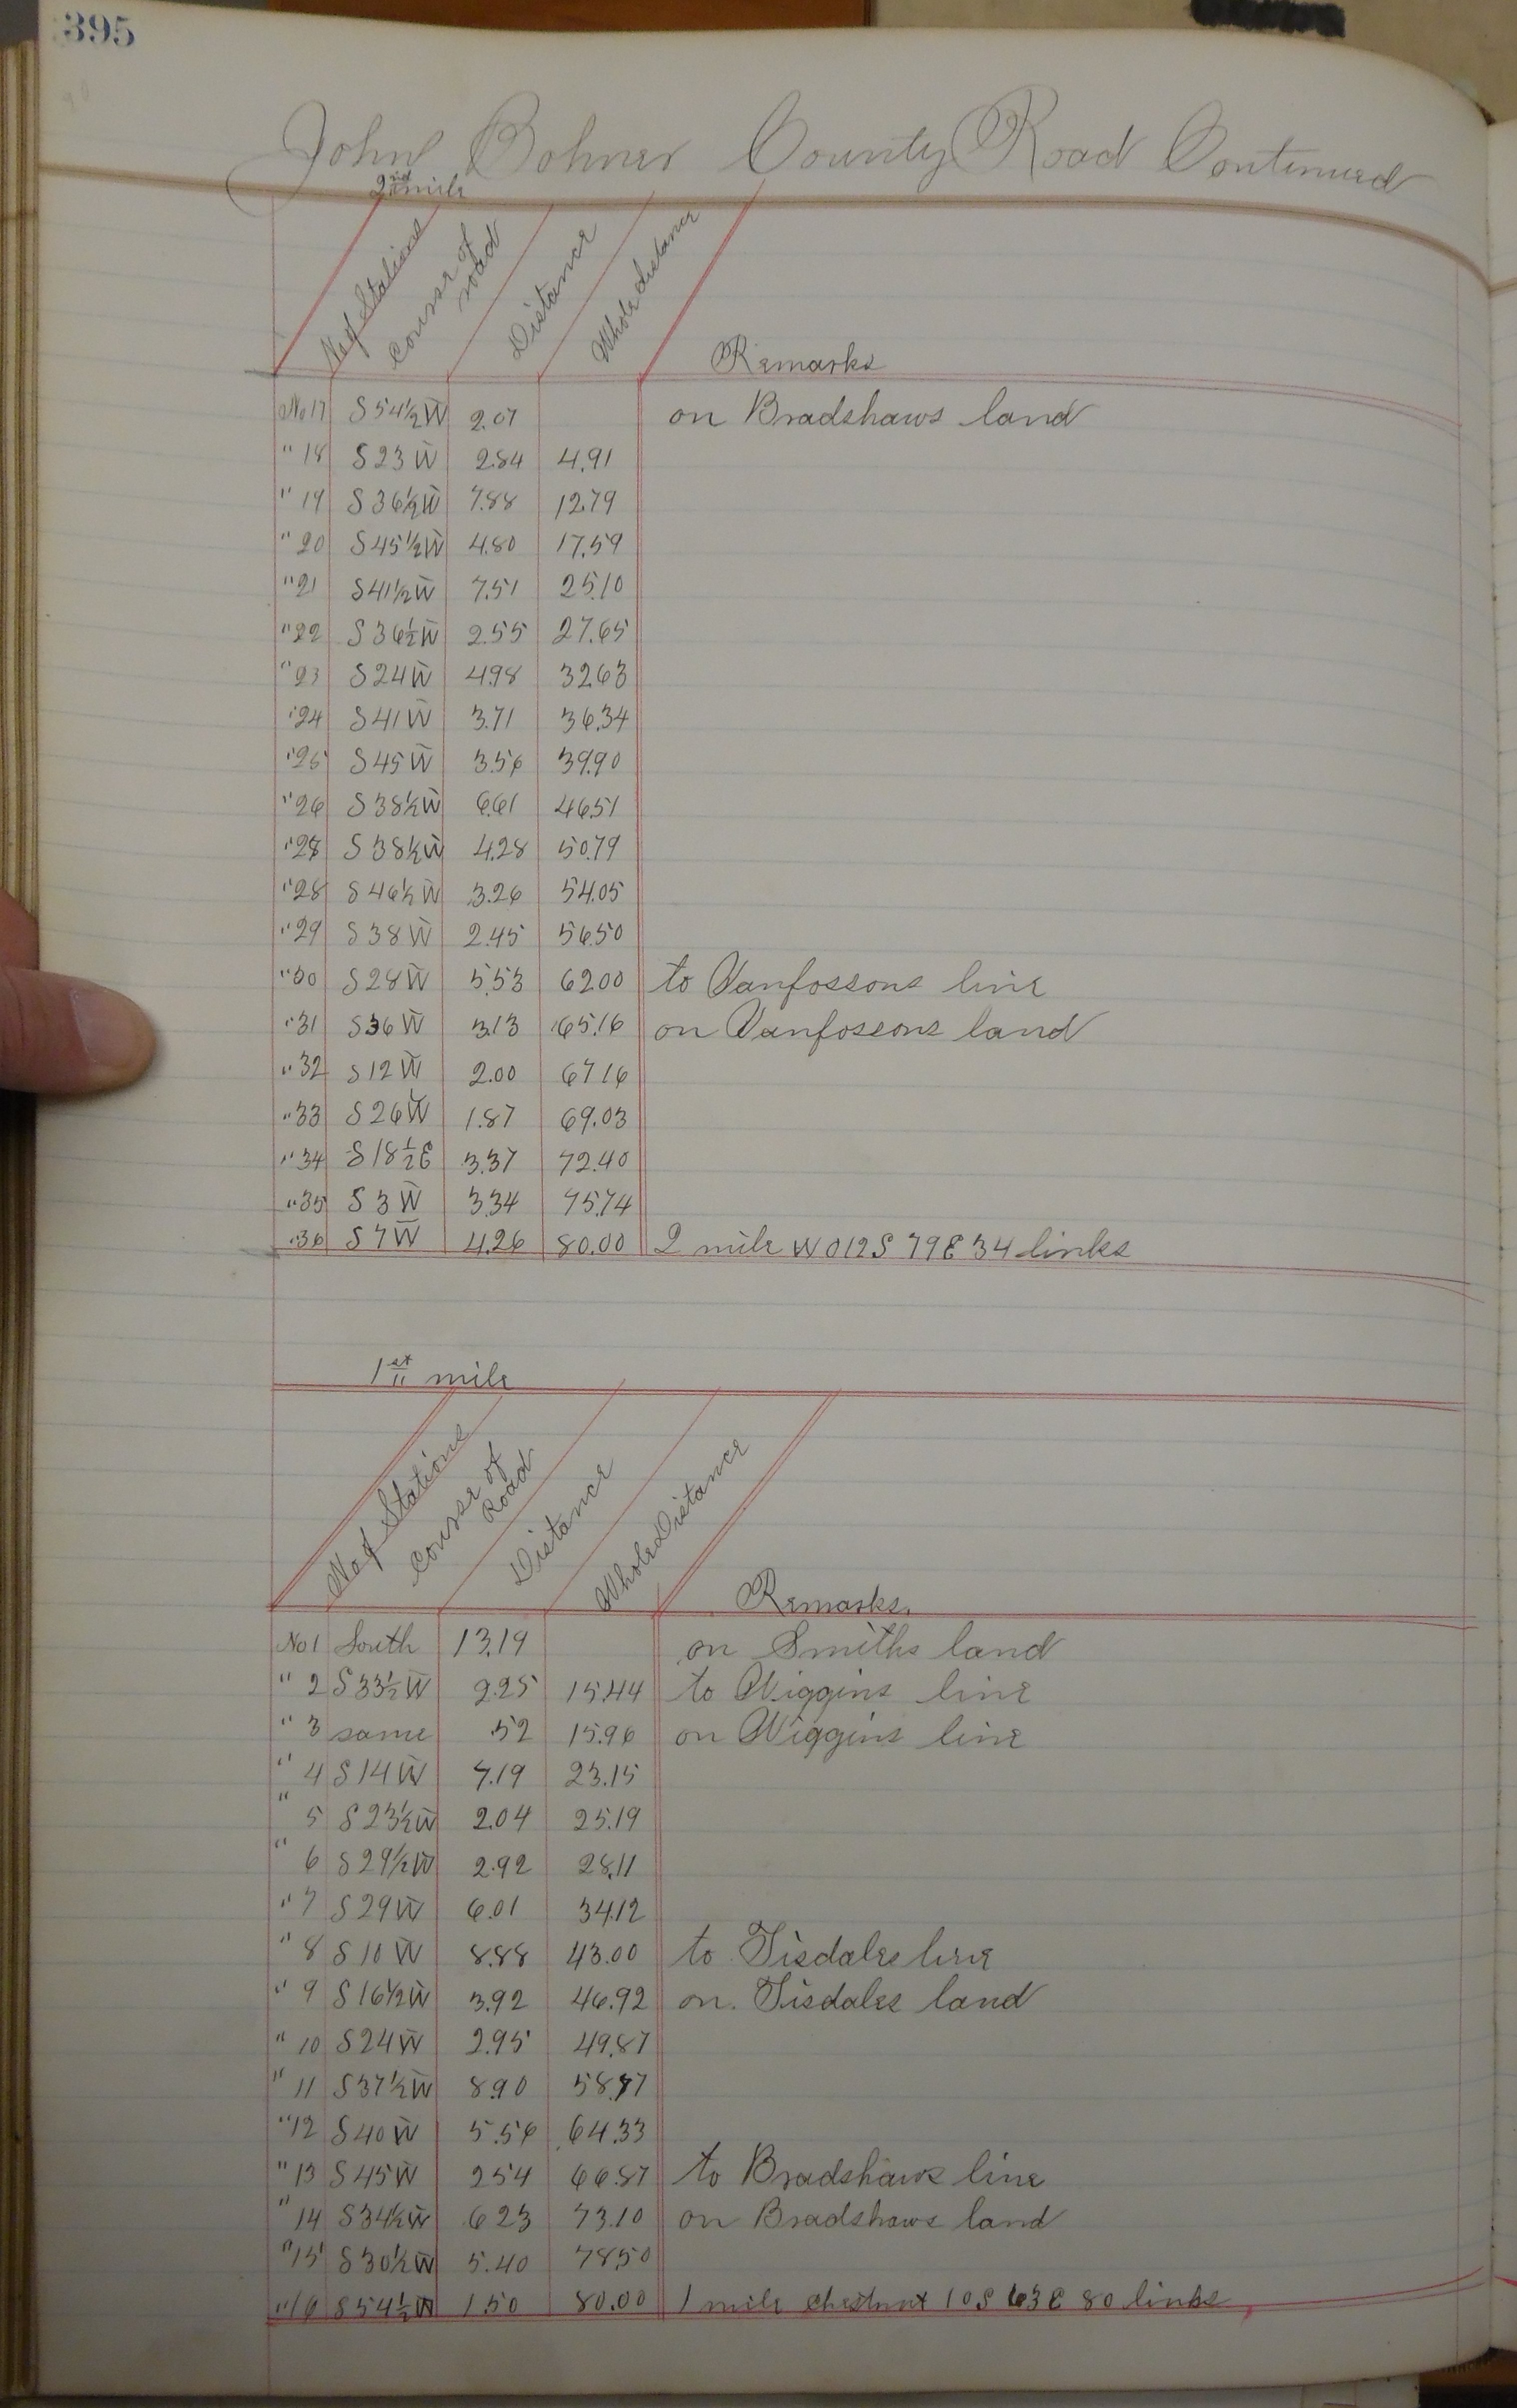 395
John Bohner County Road Continued
2nd mile
No of Stations Course of road Distance Whole distance Remarks
No 17 S 54 1/2 W 2.07 on Bradshaws land
" 18 S 23 W 2.84 4.91
" 19 S 36 1/2 W 7.88 12.79
" 20 S 45 1/2 W 4.80 17.59
" 21 S 41 1/2 W 7.51 25.10
" 22 S 36 1/2 W 2.55 27.65
" 23 S 24 W 4.98 32.63
" 24 S 41 W 3.71 36.34
" 25 S 45 W 3.56 39.90
" 26 S 38 1/2 W 6.61 46.51
" 27 S 38 1/2 W 4.28 50.79
" 28 S 46 1/2 W 3.26 54.05
" 29 S 38 W 2.45 56.50
" 30 S 28 W 5.53 62.00 to Vanfossons line
" 31 S 36 W 3.13 65.16 on Vanfossons land
" 32 S 12 W 2.00 67.16
" 33 S 26 W 1.87 69.03
" 34 S 18 1/2 E 3.37 72.40
" 35 S 3 W 3.34 75.74
" 36 S 7 W 4.26 80.00 2 mile W O 12 S 79 E 34 links
1st mile
No of Stations Course of Road Distance Whole Distance Remarks.
No 1 South 13.19 on Smiths land
" 2 S 33 1/2 W 2.25 15.44 to Wiggins line
" 3 same .52 15.96 on Wiggins line
" 4 S 14 W 7.19 23.15
" 5 S 23 1/2 W 2.04 25.19
" 6 S 29 1/2 W 2.92 28.11
" 7 S 29 W 6.01 34.12
" 8 S 10 W 8.88 43.00 to Tisdales line
" 9 S 16 1/2 W 3.92 46.92 on Tisdales land
" 10 S 24 W 2.95 49.87
" 11 S 37 1/2 W 8.90 58.77
" 12 S 40 W 5.56 64.33
" 13 S 45 W 2 54 66.87 to Bradshaws line
" 14 S 34 1/2 W 6 23 73.10 on Bradshaws land
" 15 S 30 1/2 W 5.40 78.50
" 16 S 54 1/2 W 1.50 80.00 1 mile Chestnut 10 S 63 E 80 links